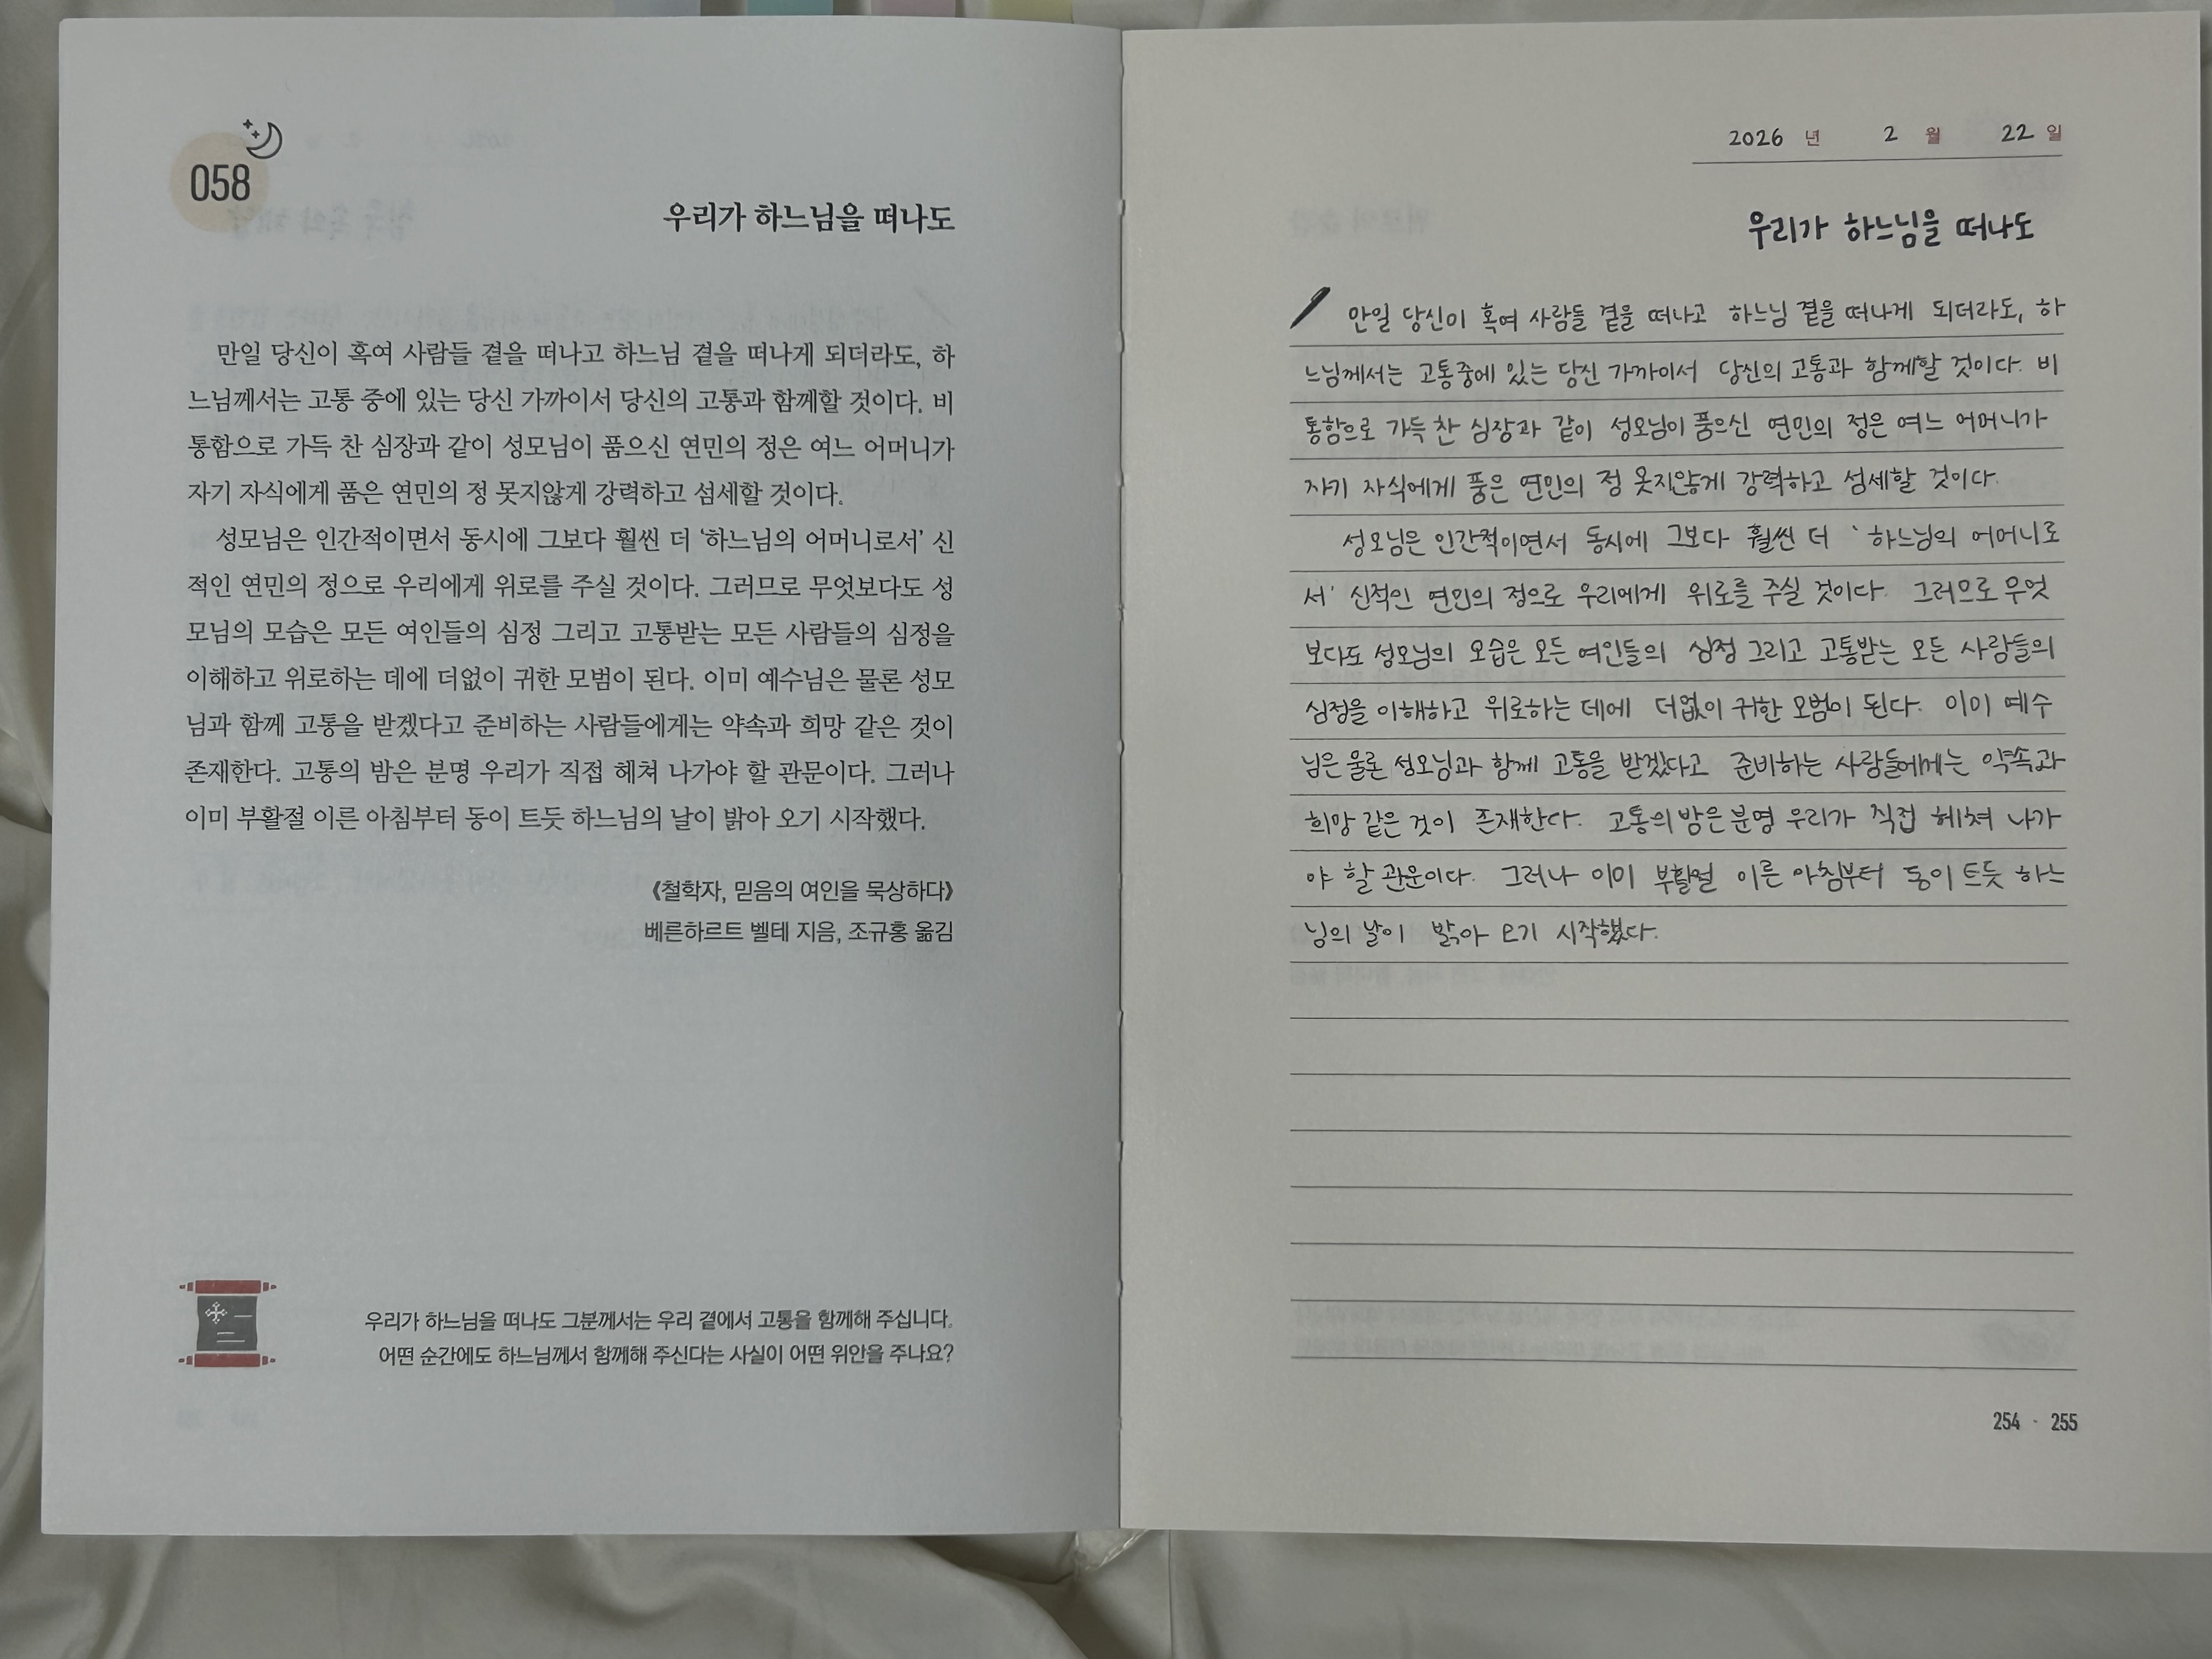 058
우리가 하느님을 떠나도
만일 당신이 혹여 사람들 곁을 떠나고 하느님 곁을 떠나게 되더라도, 하
느님께서는 고통 중에 있는 당신 가까이서 당신의 고통과 함께할 것이다. 비
통함으로 가득 찬 심장과 같이 성모님이 품으신 연민의 정은 여느 어머니가
자기 자식에게 품은 연민의 정 못지않게 강력하고 섬세할 것이다.
성모님은 인간적이면서 동시에 그보다 훨씬 더 ‘하느님의 어머니로서’ 신
적인 연민의 정으로 우리에게 위로를 주실 것이다. 그러므로 무엇보다도 성
모님의 모습은 모든 여인들의 심정 그리고 고통받는 모든 사람들의 심정을
이해하고 위로하는 데에 더없이 귀한 모범이 된다. 이미 예수님은 물론 성모
님과 함께 고통을 받겠다고 준비하는 사람들에게는 약속과 희망 같은 것이
존재한다. 고통의 밤은 분명 우리가 직접 헤쳐 나가야 할 관문이다. 그러나
이미 부활절 이른 아침부터 동이 트듯 하느님의 날이 밝아 오기 시작했다.
《철학자, 믿음의 여인을 묵상하다》
베른하르트 벨테 지음, 조규홍 옮김
우리가 하느님을 떠나도 그분께서는 우리 곁에서 고통을 함께해 주십니다.
어떤 순간에도 하느님께서 함께해 주신다는 사실이 어떤 위안을 주나요?
2026 년 2 월 22 일
우리가 하느님을 떠나도
만일 당신이 혹여 사람들 곁을 떠나고 하느님 곁을 떠나게 되더라도, 하
느님께서는 고통중에 있는 당신 가까이서 당신의 고통과 함께할 것이다. 비
통함으로 가득 찬 심장과 같이 성모님이 품으신 연민의 정은 여느 어머니가
자기 자식에게 품은 연민의 정 못지않게 강력하고 섬세할 것이다.
성모님은 인간적이면서 동시에 그보다 훨씬 더 ‘하느님의 어머니로
서’ 신적인 연민의 정으로 우리에게 위로를 주실 것이다. 그러므로 무엇
보다도 성모님의 모습은 모든 여인들의 심정 그리고 고통받는 모든 사람들의
심정을 이해하고 위로하는 데에 더없이 귀한 모범이 된다. 이미 예수
님은 물론 성모님과 함께 고통을 받겠다고 준비하는 사람들에게는 약속과
희망 같은 것이 존재한다. 고통의 밤은 분명 우리가 직접 헤쳐 나가
야 할 관문이다. 그러나 이미 이른 아침부터 동이 트듯 하느
님의 날이 밝아 오기 시작했다.
254 · 255